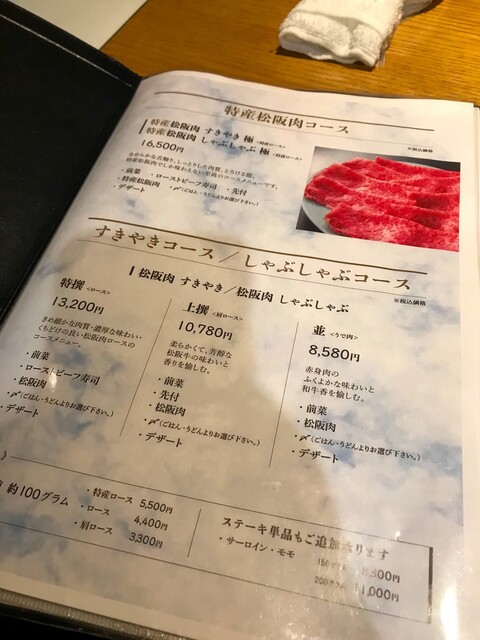 特産松阪肉コース
※税込価格
特産松阪肉 すきやき 極 <特産ロース>
特産松阪肉 しゃぶしゃぶ 極 <特産ロース>
16,500円
なめらかな舌触り、しっとりした肉質、とろける脂、
特産松阪肉でしか味わえない至高のコースメニューです。
・前菜 ・ローストビーフ寿司 ・先付
・特産松阪肉 ・〆(ごはん・うどんよりお選び下さい。)
・デザート
すきやきコース／しゃぶしゃぶコース
※税込価格
松阪肉 すきやき／松阪肉 しゃぶしゃぶ
特撰 <ロース>
13,200円
きめ細かな肉質・濃厚な味わい・
くちどけの良い松阪肉ロースの
コースメニュー。
・前菜
・ローストビーフ寿司
・松阪肉
・〆(ごはん・うどんよりお選び下さい。)
・デザート
上撰 <肩ロース>
10,780円
柔らかくて、芳醇な
松阪牛の味わいと
香りを愉しむ。
・前菜
・先付
・松阪肉
・〆(ごはん・うどんよりお選び下さい。)
・デザート
並 <うで肉>
8,580円
赤身肉の
ふくよかな味わいと
和牛香を愉しむ。
・前菜
・松阪肉
・〆(ごはん・うどんよりお選び下さい。)
・デザート
約100グラム
・特産ロース 5,500円
・ロース 4,400円
・肩ロース 3,300円
ステーキ単品もご追加承ります
・サーロイン・モモ